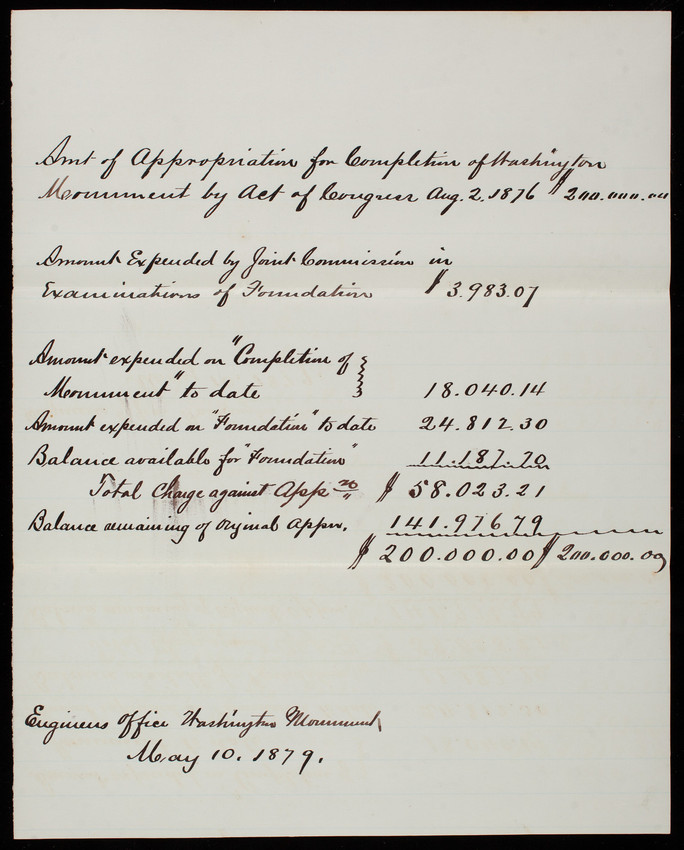 Amt of Appropriation for Completion of Washington
Monument by Act of Congress Aug. 2. 1876 $ 200.000.00
Amount Expended by Joint Commission in
Examinations of Foundation $ 3.983.07
Amount expended on "Completion of
Monument" to date 18.040.14
Amount expended on "Foundation" to date 24.812.30
Balance available for "Foundation" 11.187.70
Total Charge against App $ 58.023.21
Balance remaining of Original Appr. 141.976.79
$ 200.000.00 $ 200.000.00
Engineers Office Washington Monument
May 10. 1879.